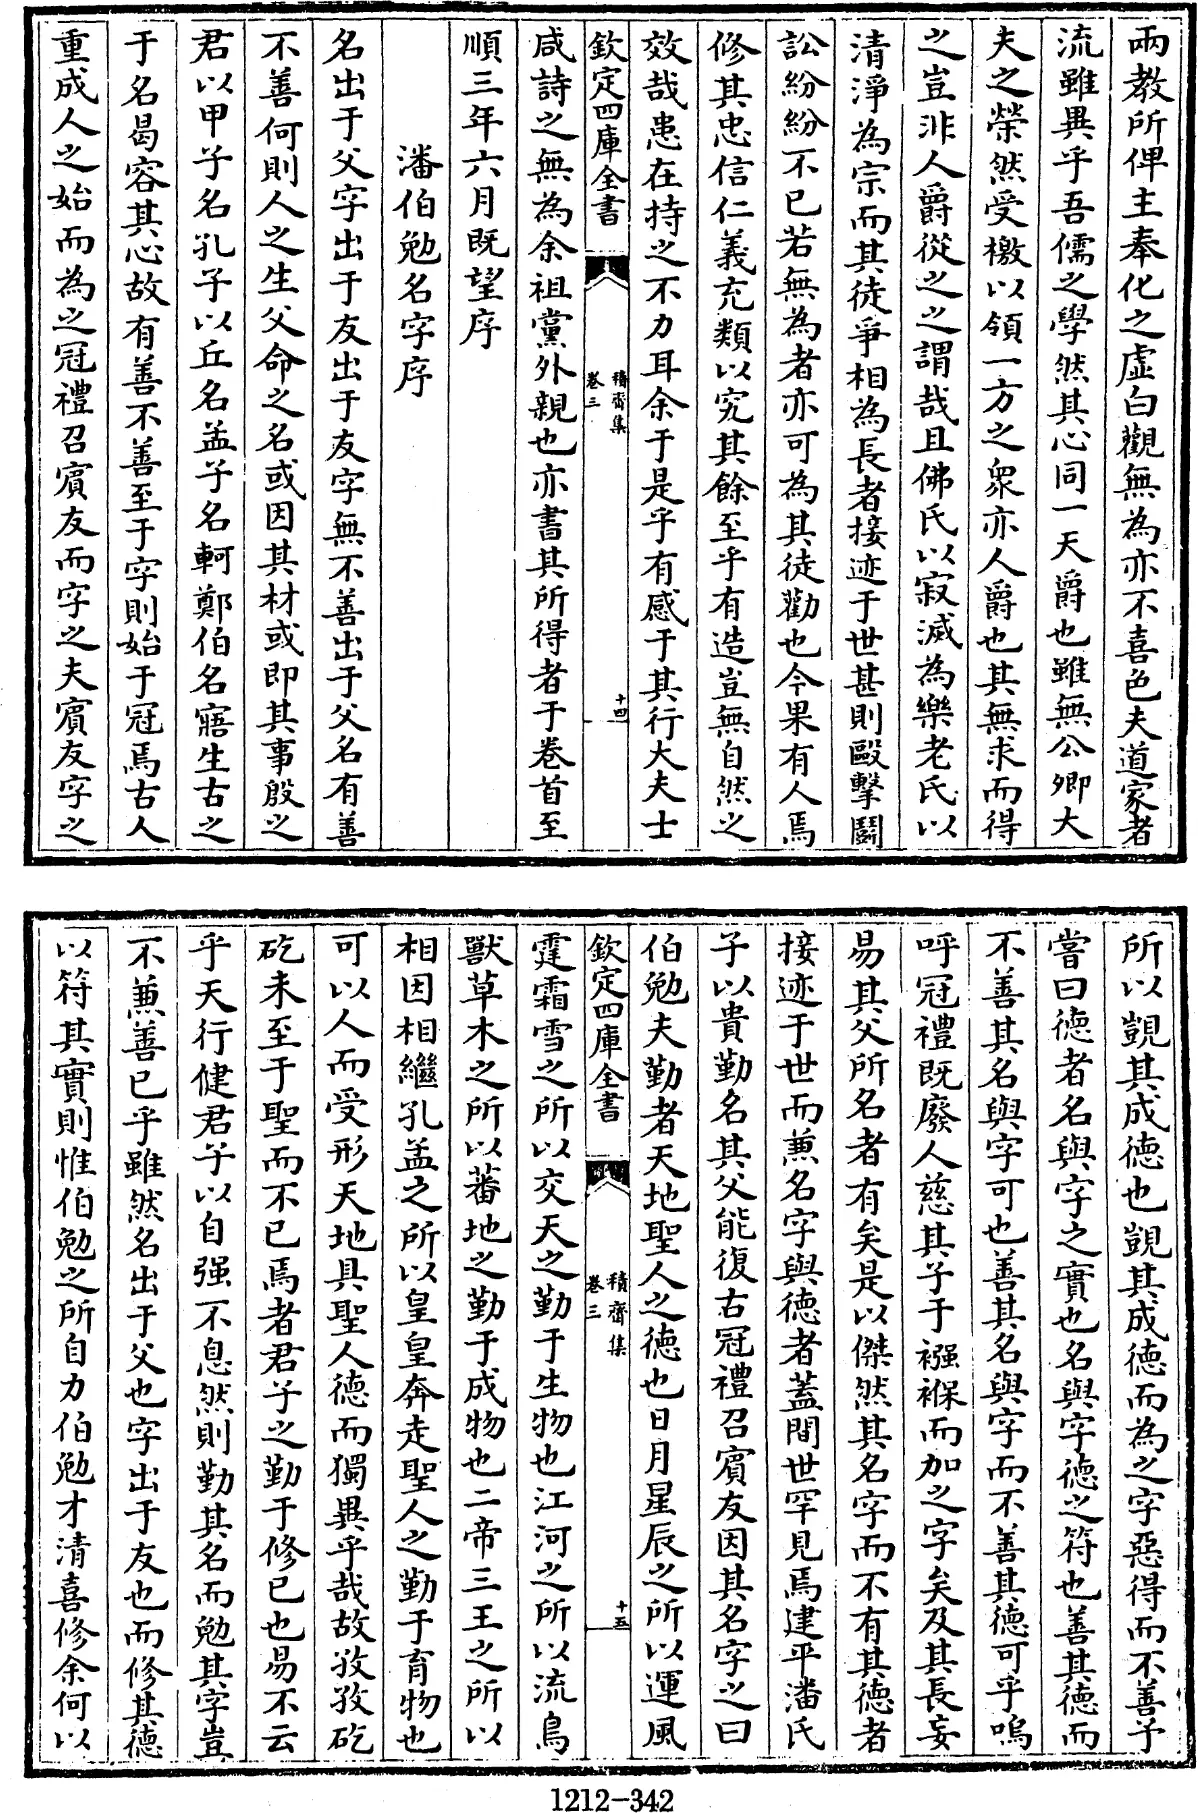 兩教所俾主奉化之虛白觀無為亦不喜色夫道家者
流雖異乎吾儒之學然其心同一天爵也雖無公卿大
夫之榮然受檄以領一方之眾亦人爵也其無求而得
之豈非人爵從之之謂哉且佛氏以寂滅為樂老氏以
清淨為宗而其徒爭相為長者接迹于世甚則毆擊鬬
訟紛紛不已若無為者亦可為其徒勸也今果有人焉
修其忠信仁義充類以究其餘至乎有造豈無自然之
效哉患在持之不力耳余于是乎有感于其行大夫士
欽定四庫全書 積齋集 卷三 十四
咸詩之無為余祖黨外親也亦書其所得者于卷首至
順三年六月既望序
潘伯勉名字序
名出于父字出于友出于友字無不善出于父名有善
不善何則人之生父命之名或因其材或即其事殷之
君以甲子名孔子以丘名孟子名軻鄭伯名寤生古之
于名曷容其心故有善不善至于字則始于冠焉古人
重成人之始而為之冠禮召賓友而字之夫賓友字之
所以覬其成德也覬其成德而為之字惡得而不善予
嘗曰德者名與字之實也名與字德之符也善其德而
不善其名與字可也善其名與字而不善其德可乎嗚
呼冠禮既廢人慈其子于襁褓而加之字矣及其長妄
易其父所名者有矣是以傑然其名字而不有其德者
接迹于世而兼名字與德者蓋間世罕見焉建平潘氏
子以貴勤名其父能復古冠禮召賓友因其名字之曰
伯勉夫勤者天地聖人之德也日月星辰之所以運風
欽定四庫全書 積齋集 卷三 十五
霆霜雪之所以交天之勤于生物也江河之所以流鳥
獸草木之所以蕃地之勤于成物也二帝三王之所以
相因相繼孔孟之所以皇皇奔走聖人之勤于育物也
可以人而受形天地具聖人德而獨異乎哉故孜孜矻
矻未至于聖而不已焉者君子之勤于修已也易不云
乎天行健君子以自强不息然則勤其名而勉其字豈
不兼善已乎雖然名出于父也字出于友也而修其德
以符其實則惟伯勉之所自力伯勉才清喜修余何以
1212-342